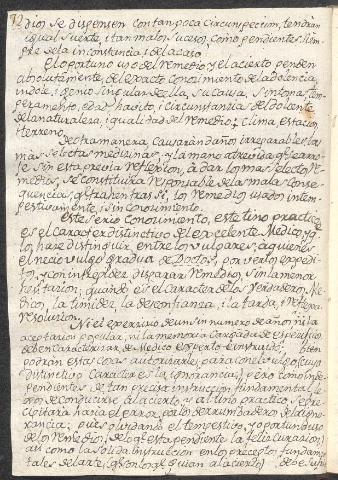 dios, se dispensen con tan poca circunspeccion, tendràn
igual suerte, i tan malos sucesos, como pendientes siem-
pre de la inconstancia, i del acaso.
El oportuno uso del remedio, y el acierto penden
absolutamente, del exacto conocimiento de la dolencia,
indole, i genio singular de ella, su causa, sintomas, tem-
peramento, edad, havito, i circunstancias del doliente,
de la naturaleza, i qualidad del remedio, clima, estacion,
y terreno.
De otra manera, causaràn daños irreparables, las
mas selectas medicinas, y la mano atrevida, que se arro-
je sin esta previa reflexion, à dar los mas selectos re-
medios, se constituirà responsable de las malas conse-
quencias, que trahen tras sì, los remedios usados intem-
pestivamente, i sin conocimiento.
Este serio conocimiento, este tino practico
es el caracter distinctivo del excelente Medico, y lo
los hace distinguir, entre los vulgares, a quienes
el necio vulgo gradua de Doctos, por verlos expedi-
tos, y con intrepidez disparar remedios, sin la menor
hesitacion; quando es el caracter de los verdaderos Me-
dicos, la timidez, la desconfianza, i la tarda,
resolucion.
Ni el exercicio de un sin numero de años, ni la
aceptacion popular, ni la memoria cargada de especificos
deben caracterizar de Medico experto è instruido; bien
podran estas cosas autorizarle, para con el vulgo (cuyo
distinctivo caracter es la ignorancia) pero como inde-
pendientes de tan precisa instruccion fundamental,
de conducirse al acierto, y al tino practico se pre-
cipitara hacia el error, por los derrumbaderos de la igno-
rancia; pues olvidando el tempestivo, y oportuno uso
de los remedios, (de lo que està pendiente la feliz curacion)
asi como la solida instruccion en los preceptos fundamen-
tales del arte, (que son los que guian al acierto)